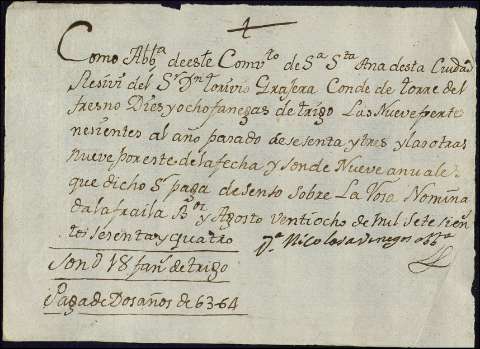 Como Abb.ª deeste Comv.to de S.ª S.ta Ana desta Ciudad
Resivi del S.r D.n torivio Grajera Conde de torre del
fresno Dies y ocho fanegas de trigo Las Nueve perte
nesientes al año pasado de sesenta y tres y las otras
nueve por este de la fecha y son de Nueve anuales
que dicho S.r paga de senso sobre La Yosa Nomina
da la fraila y Agosto ventiocho de mil sete sien
tos sesenta y quatro D.ª Nicolasa Abb.ª
Son D 18 fan.s de trigo
Paga de Dos años de 63-64